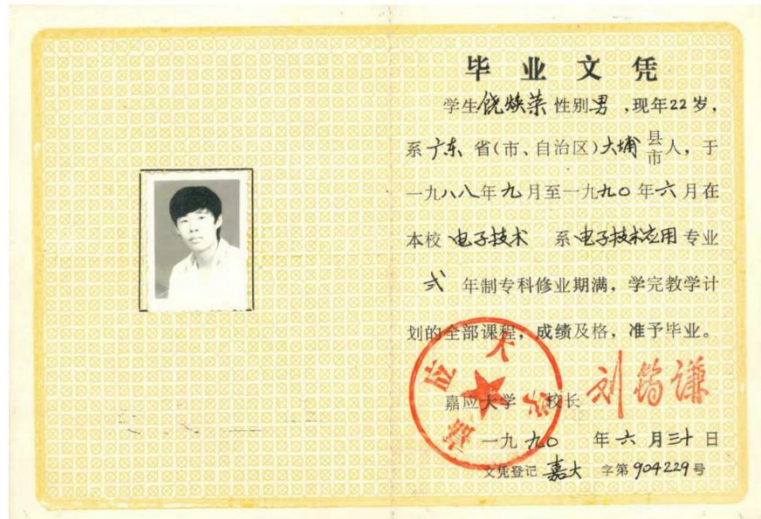 毕业文凭
学生饶焕荣 性别男,现年22岁,
系广东省(市、自治区)大埔县市人,于
一九八八年九月至一九九〇年六月在
本校 电子技术 系电子技术应用专业
弍 年制专科修业期满,学完教学计
划的全部课程,成绩及格,准予毕业。
嘉应大学
嘉应大学 校长 刘筠谦
一九九〇 年六月三十日
文凭登记 嘉大 字第904229号